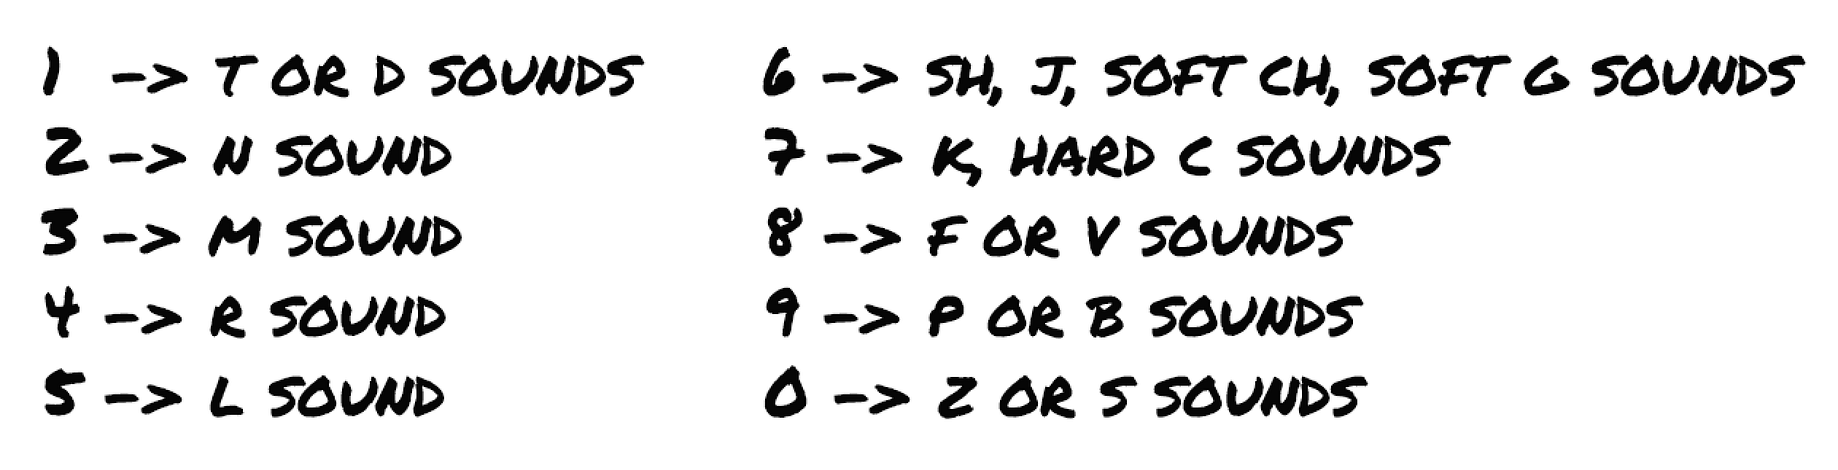 1 -> T OR D SOUNDS
2 -> N SOUND
3 -> M SOUND
4 -> R SOUND
5 -> L SOUND
6 -> SH, J, SOFT CH, SOFT G SOUNDS
7 -> K, HARD C SOUNDS
8 -> F OR V SOUNDS
9 -> P OR B SOUNDS
0 -> Z OR S SOUNDS